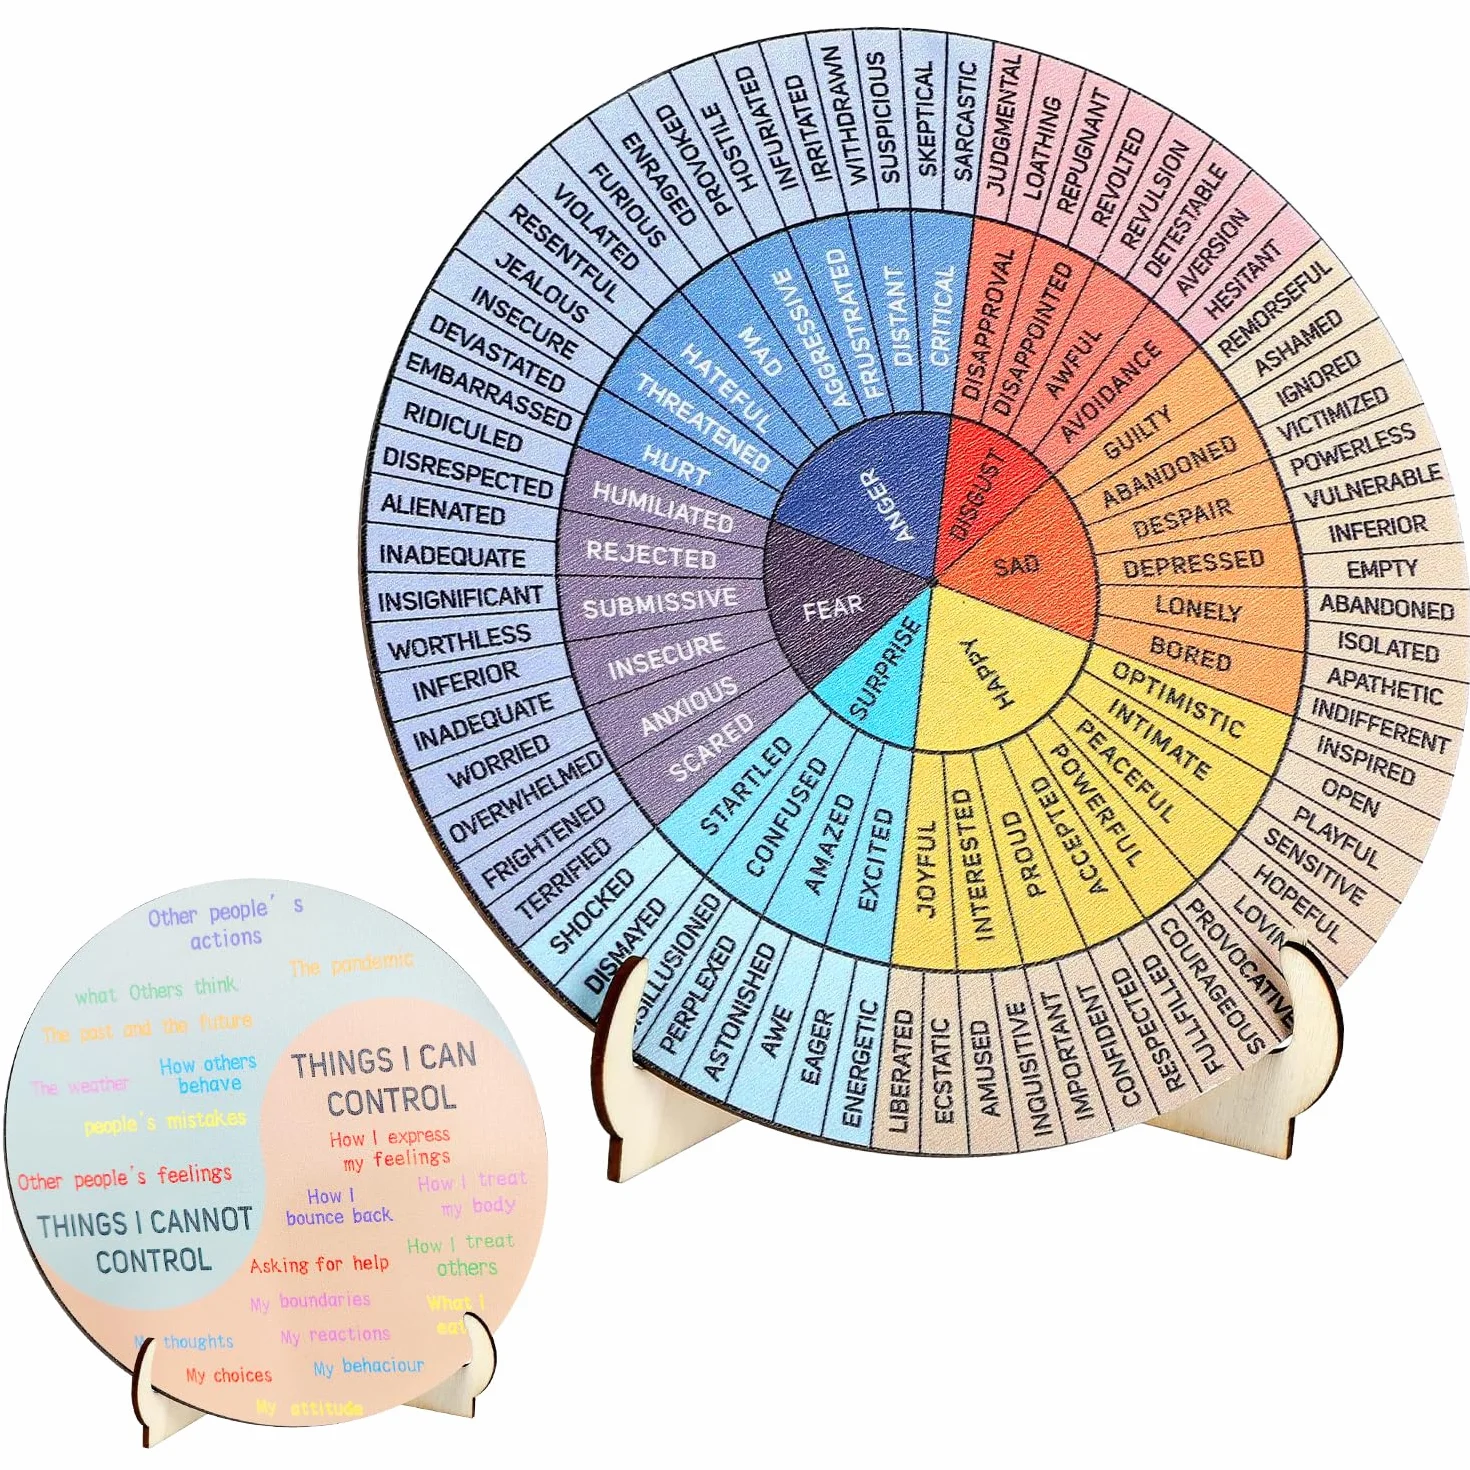 ANGER
DISGUST
SAD
HAPPY
SURPRISE
FEAR
HURT
THREATENED
HATEFUL
MAD
AGGRESSIVE
FRUSTRATED
DISTANT
CRITICAL
DISAPPROVAL
DISAPPOINTED
AWFUL
AVOIDANCE
GUILTY
ABANDONED
DESPAIR
DEPRESSED
LONELY
BORED
OPTIMISTIC
INTIMATE
PEACEFUL
POWERFUL
ACCEPTED
PROUD
INTERESTED
JOYFUL
EXCITED
AMAZED
CONFUSED
STARTLED
SCARED
ANXIOUS
INSECURE
SUBMISSIVE
REJECTED
HUMILIATED
EMBARRASSED
DEVASTATED
INSECURE
JEALOUS
RESENTFUL
VIOLATED
FURIOUS
ENRAGED
PROVOKED
HOSTILE
INFURIATED
IRRITATED
WITHDRAWN
SUSPICIOUS
SKEPTICAL
SARCASTIC
JUDGMENTAL
LOATHING
REPUGNANT
REVOLTED
REVULSION
DETESTABLE
AVERSION
HESITANT
REMORSEFUL
ASHAMED
IGNORED
VICTIMIZED
POWERLESS
VULNERABLE
INFERIOR
EMPTY
ABANDONED
ISOLATED
APATHETIC
INDIFFERENT
INSPIRED
OPEN
PLAYFUL
SENSITIVE
HOPEFUL
LOVIN
PROVOCATIVE
COURAGEOUS
FULLFILLED
RESPECTED
CONFIDENT
IMPORTANT
INQUISITIVE
AMUSED
ECSTATIC
LIBERATED
ENERGETIC
EAGER
AWE
ASTONISHED
PERPLEXED
SILLUSIONED
DISMAYED
SHOCKED
TERRIFIED
FRIGHTENED
OVERWHELMED
WORRIED
INADEQUATE
INFERIOR
WORTHLESS
INSIGNIFICANT
INADEQUATE
ALIENATED
DISRESPECTED
RIDICULED
Other people' s
actions
The pandemic
what Others think
The past and the future
How others
behave
The weather
people's mistakes
Other people's feelings
THINGS I CANNOT
CONTROL
THINGS I CAN
CONTROL
How I express
my feelings
How I treat
my body
How I
bounce back
How I treat
others
Asking for help
My boundaries
What I
eat
My thoughts
My reactions
My choices
My behaciour
My attitude